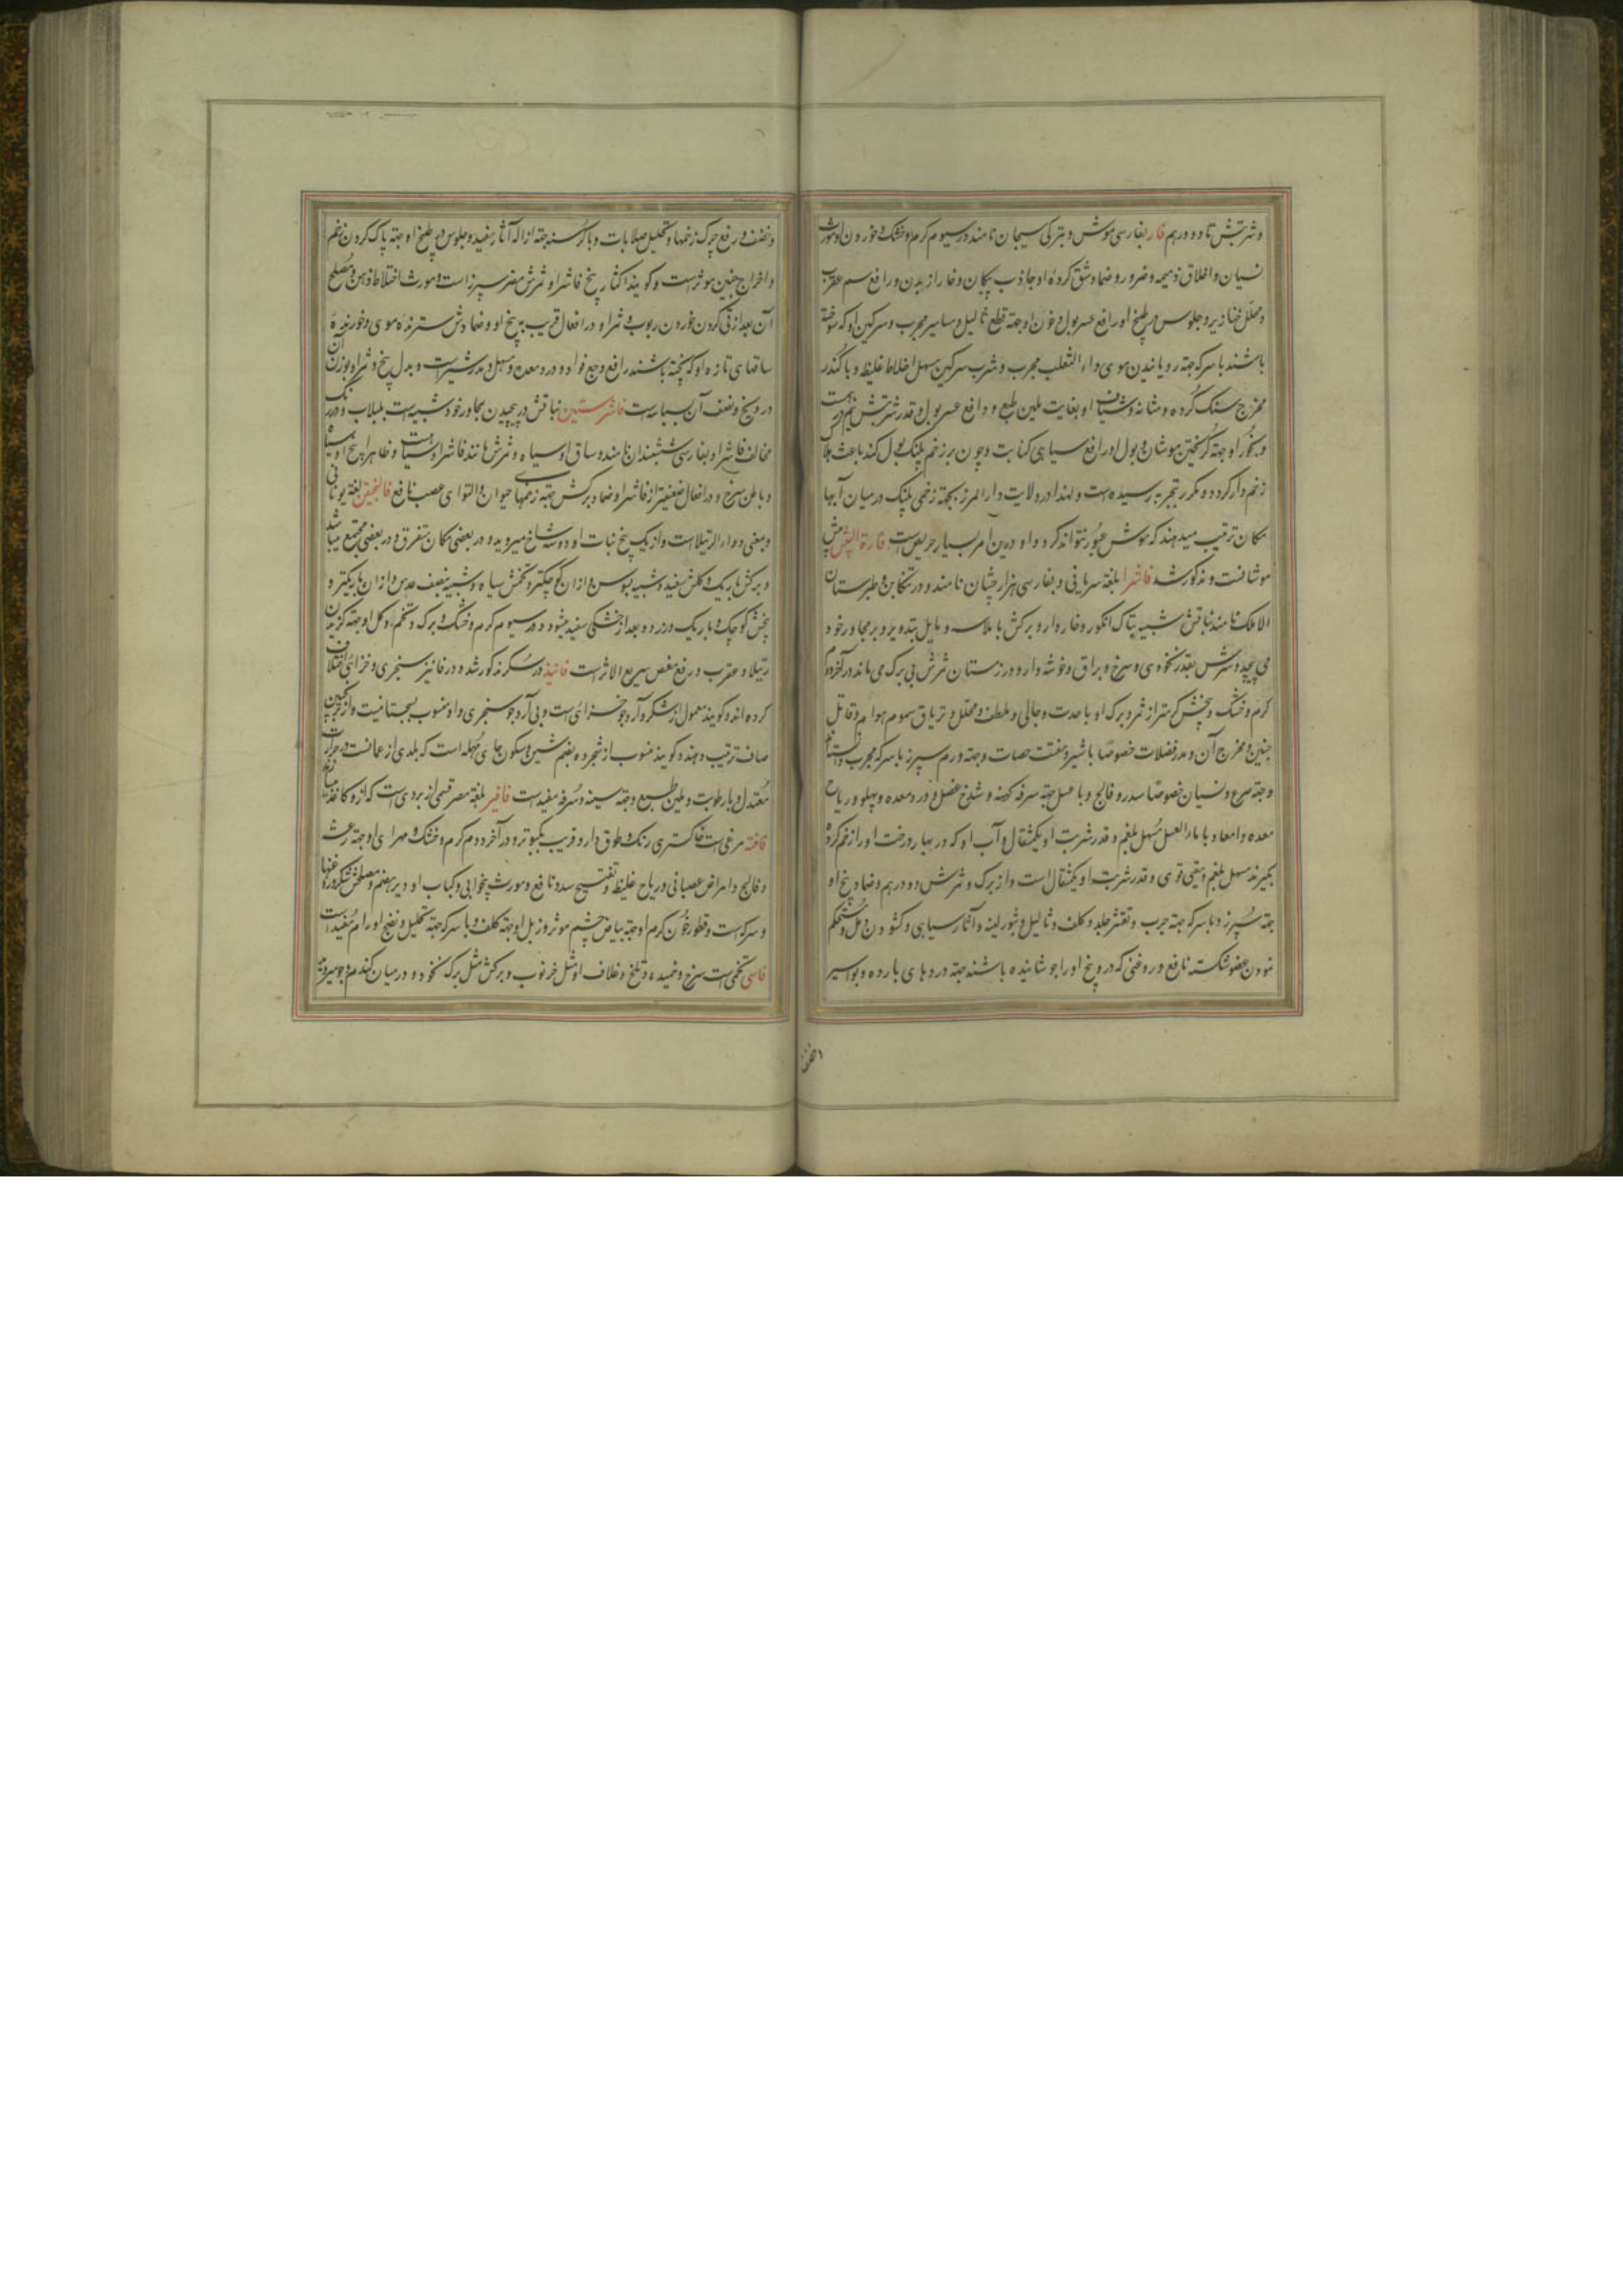 و شربتش تا دو درهم فار بفارسی موش و بترکی سیچان نامند در سیوم گرم و خشک و خوردن او مورث
نسیان و اخلاق ذمیمه و ضرور و ضماد شق کرده او جاذب پیکان و خار از بدن و رافع سم عقرب
و محلل خنازیر و جلوس در طبیخ او رافع عسر بول و خون او جهة قطع ثالیل و مسامیر مجرب و سرکین او که سوخته
باشند با سرکه جهة رویانیدن موی داء الثعلب مجرب و شرب سرکین مسهل اخلاط غلیظه و با کندر
مخرج سنک کرده و مثانه و شیاف او بغایت ملین طبع و دافع عسر بول و قدر شربتش نیم درهم است
و بخور او جهة گریختن موشان و بول او رافع سیاهی کتابت و چون بر زخم پلنک بول کند باعث هلاک
زخم دار کردد و مکرر بتجربه رسیده است و لهذا در ولایت دار المرز بجهة زخمی پلنک در میان آبها
مکان ترتیب میدهند که موش عبور نتواند کرد و او در این امر بسیار حریص است فارة البیش
موشانست و مذکور شد فاشرا بلغة سریانی و بفارسی هزار جشان نامند و در تنکابن و طبرستان
الاملک نامند نباتش شبیه بتاک انکور و خار دار و برکش با ملاست و مایل بتدویر و بر مجاور خود
می پیچد و ثمرش بقدر نخودی و سرخ و براق و خوشه دار و در زمستان ثمرش بی برک می ماند در آخر دوم
گرم و خشک و بیخش گرمتر از ثمر و برک او با حدت و جالی و ملطف و محلل و تریاق سموم هوام و قاتل
جنین و مخرج آن و مدر فضلات خصوصا با شیر و مفتت حصات و جهة ورم سپرز با سرکه مجرب دانسته اند
و جهة صرع و نسیان خصوصا سدر و فالج و با عسل جهة سرفه کهنه و شدخ عضل و درد معده و پهلو و ریاح
معده و امعا و با ماء العسل مسهل بلغم و قدر شربت او یکمثقال و آب او که در بهار درخت او را زخم کرده
بکیرند مسهل بلغم و مقئ قوی و قدر شربت او یکمثقال است و از برک و ثمرش دو درهم و ضماد بیخ او
جهة سپرز و با سرکه جهة جرب و تقشر جلد و کلف و ثالیل و بثور لبنه و آثار سیاهی و کشودن دمل و مستحکم
نمودن عضو شکسته نافع و روغنی که در و بیخ او را جوشانیده باشند جهة دردهای بارده و بواسیر
و نضف و رفع چرک زخمها و تحلیل صلابات و با کرسنه جهة ازاله آثار مفید و جلوس در طبیخ او جهة پاک کردن رحم
و اخراج جنین موثر است و گویند اکثار بیخ فاشرا و ثمرش مضر سپرز است و مورث اختلاط ذهن و مصلح
آن بعد از قی کردن خوردن ربوب و ثمر او در افعال قریب به بیخ او و ضمادش سترنده موی و خورنده
ساقهای تازه او که پخته باشند رافع وجع فواد و درد معده و مسهل و مدر شیر است و بدل بیخ و ثمر او بوزن آن
درونج و نصف آن بسباسه است فاشرستین نباتش در پیچیدن بمجاور خود شبیه است بلبلاب و در رنک
مخالف فاشرا و بفارسی ششبندان نامند و ساق او سیاه و ثمرش مانند فاشرا و سیاه است و ظاهر بیخ او سیاه
و باطن سرخ و در افعال ضعیفتر از فاشرا و ضماد برکش جهة زخمهای حیوان و التوای عصب نافع فالنجیقن بلغة یونانی
و بمعنی دواء الرتیلا است و از یک بیخ نبات او دو سه شاخ میروید و در بعضی مکان متفرق و در بعضی مجتمع میباشد
و برکش باریک و کلش سفید و شبیه بسوسن و از ان کوچکتر و تخمش سیاه و شبیه بنصف عدس و از ان باریکتر و
بیخش کوچک و باریک و زرد و بعد از خشکی سفید میشود و در سیوم گرم و خشک و برک و تخم و کل او جهة گزیدن
رتیلا و عقرب و رفع مغص سریع الاثر است فانیذ در سکر مذکور شد و در فانیز سنجری و خزائنی اختلاف
کرده اند و کویند معمول از شکر و آرد جو خزائی است و بی آرد جو سنجری و او منسوب بسجستانیست و از ترنجبین
صاف ترتیب دهند و کویند منسوب از شجره بضم شین و سکون حای مهمله است که بلدی از عمانست در حرارت
معتدل و با رطوبت و ملین طبع و جهة سینه و سرفه مفید است فافیر بلغة مصر قسمی از بردی است که از و کاغذ میسازند
فاخته مرغی است خاکستری رنک و طوق دار و قریب بکبوتر و در آخر دوم گرم و خشک و مهرای او جهة رعشه
و فالج و امراض عصبانی و ریاح غلیظ و تفتیح سدد نافع و مورث بیخوابی و کباب او دیر هضم و مصلحش شکر و روغنها
و سرکه است و قطور خون گرم او جهة بیاض چشم موثر و زبل او جهة کلف و با سرکه جهة تحلیل و نضج اورام مفید است
فاسی تخمی است سرخ و خمیده و تلخ و غلاف او مثل خرنوب و برکش مثل برک نخود و در میان کندم و جو میروید